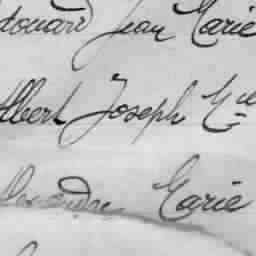 douard Jean Marie
Albert Joseph Mie
Alexandre Marie